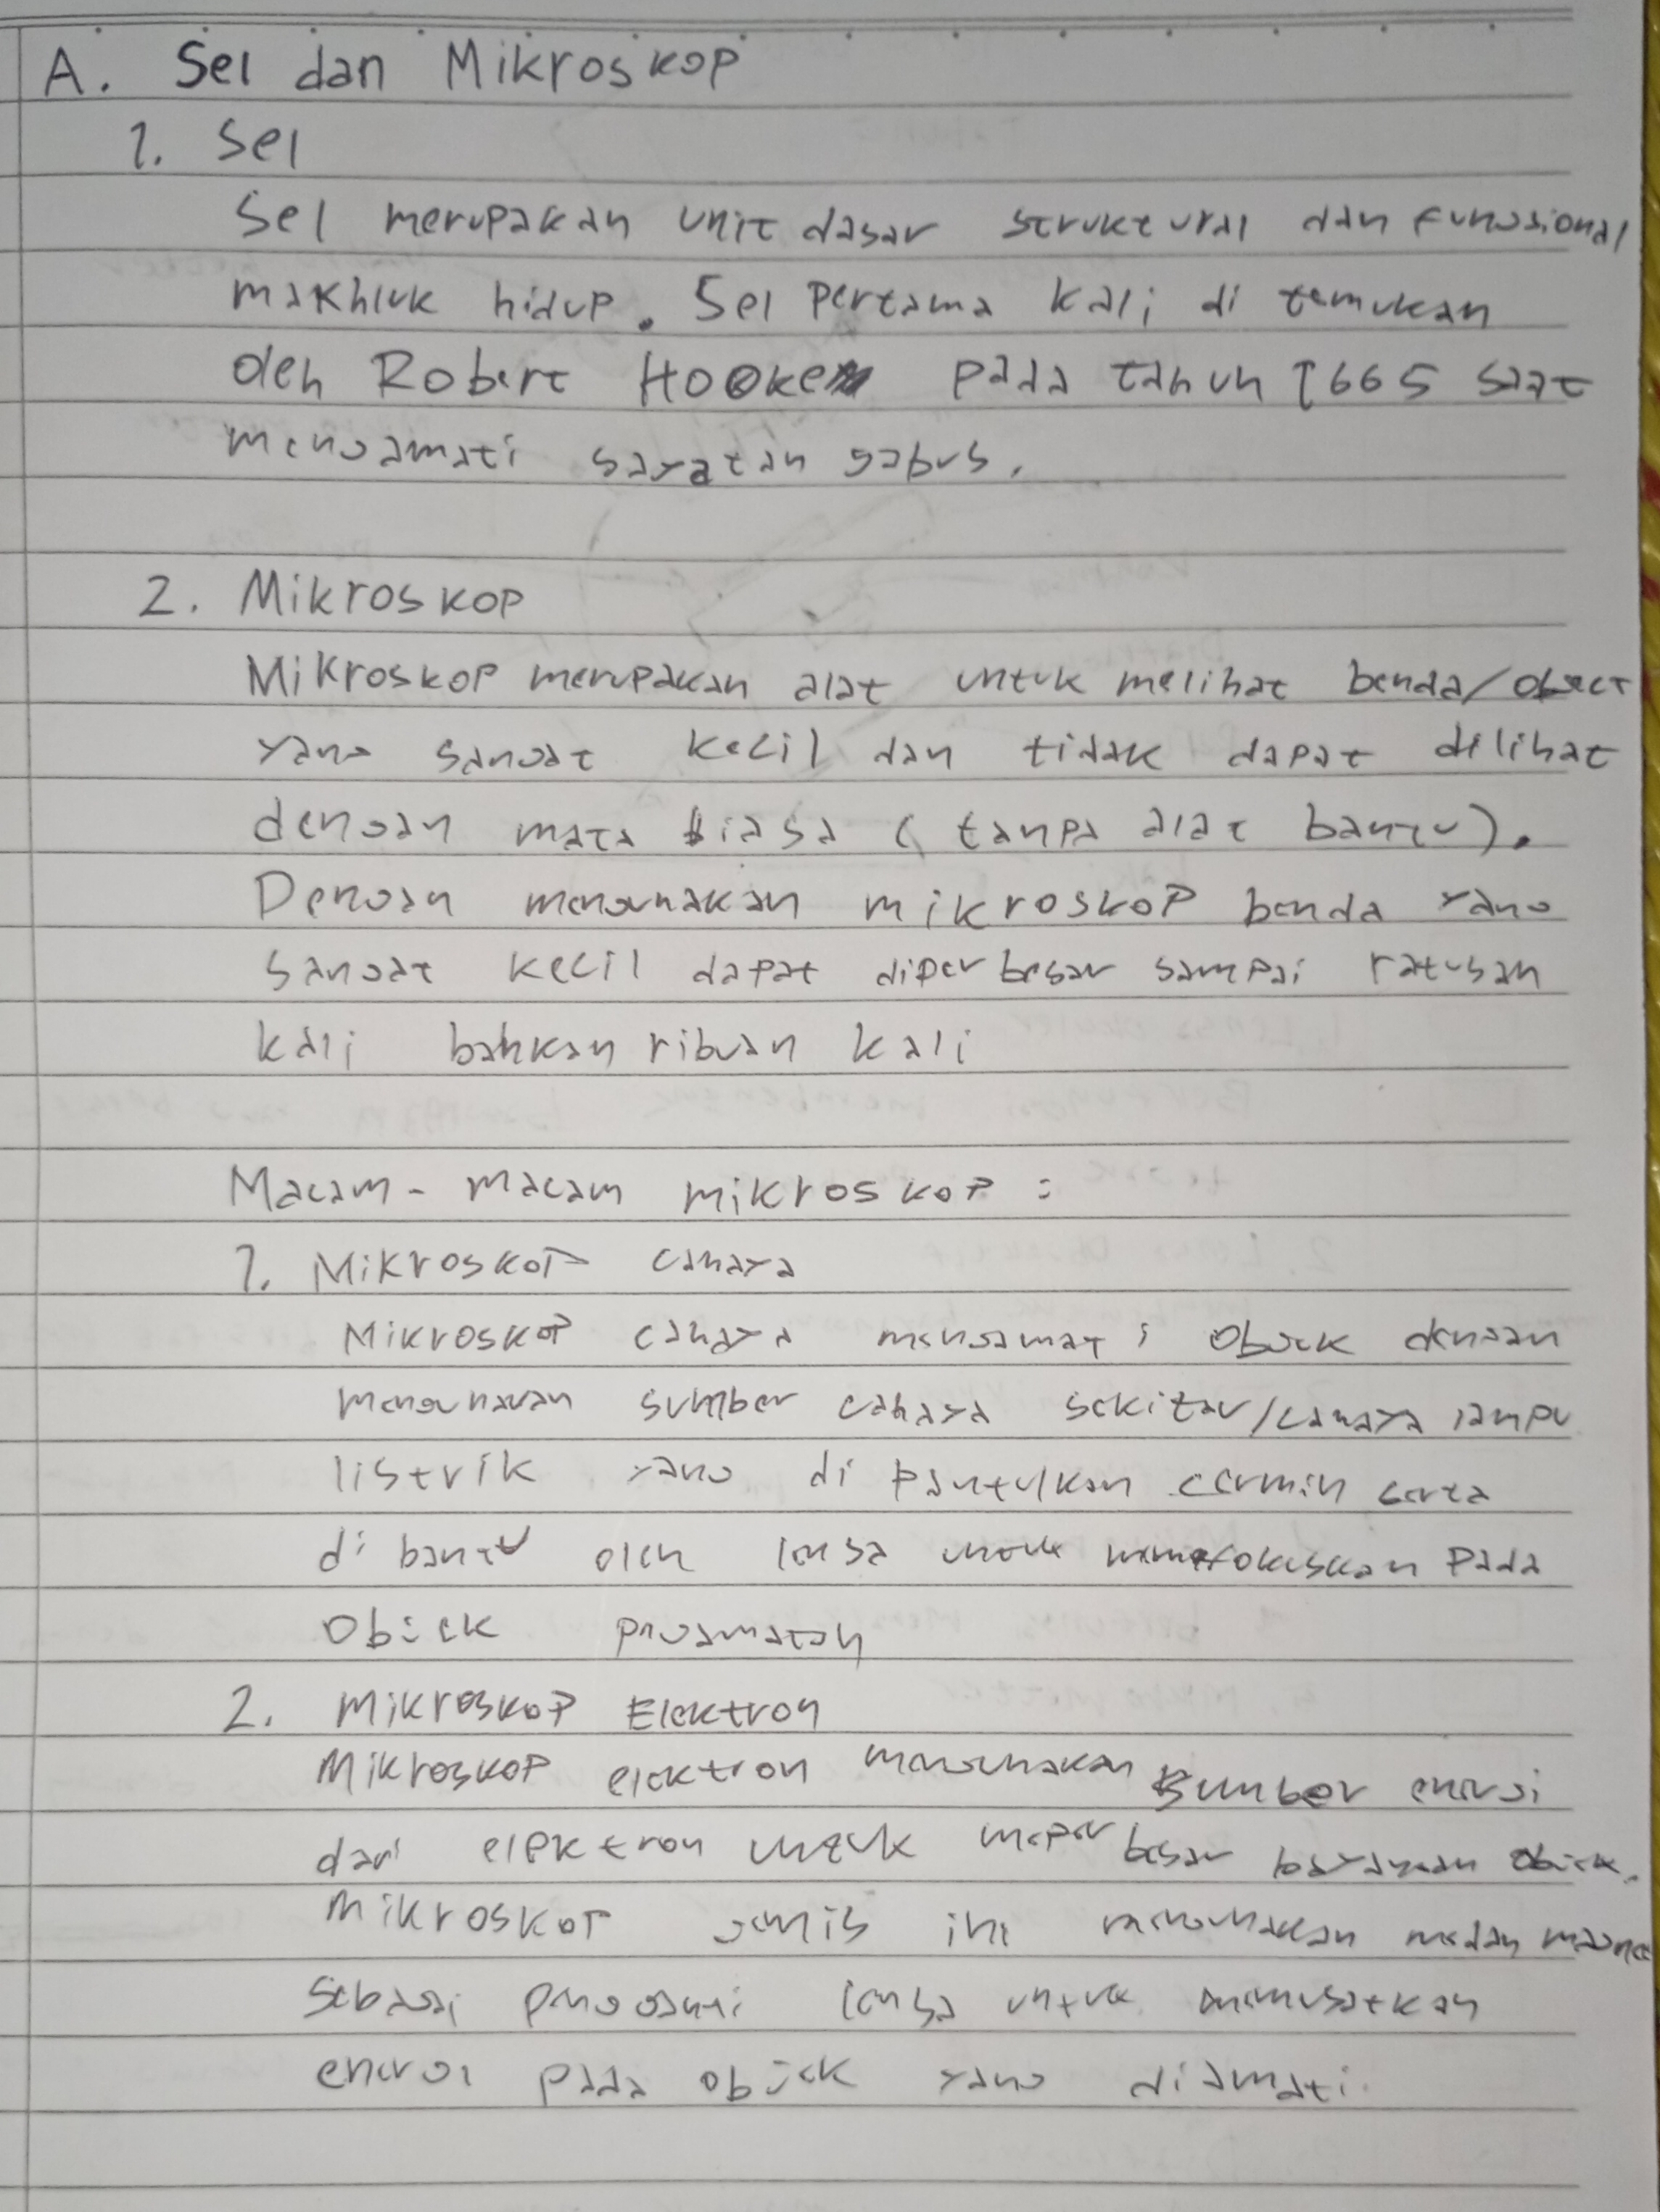 A. Sel dan Mikroskop
1. Sel
Sel merupakan unit dasar struktural dan fungsional
makhluk hidup. Sel pertama kali di temukan
oleh Robert Hooke pada tahun 1665 saat
mengamati sayatan gabus.
2. Mikroskop
Mikroskop merupakan alat untuk melihat benda/object
yang sangat kecil dan tidak dapat dilihat
dengan mata biasa (tanpa alat bantu).
Dengan mengunakan mikroskop benda yang
sangat kecil dapat diperbesar sampai ratusan
kali bahkan ribuan kali
Macam-macam mikroskop :
1. Mikroskop cahaya
Mikroskop cahaya mengamati objek dengan
mengunakan sumber cahaya sekitar/cahaya lampu
listrik yang di pantulkan cermin serta
di bantu oleh lensa untuk memfokuskan pada
objek pngamatan
2. Mikroskop Elektron
Mikroskop elektron mengunakan sumber energi
dari elektron untuk meperbesar bayangan objek.
Mikroskop jenis ini mengunakan medan magnet
sebagai pngganti lensa untuk memusatkan
energi pada objek yang diamati.